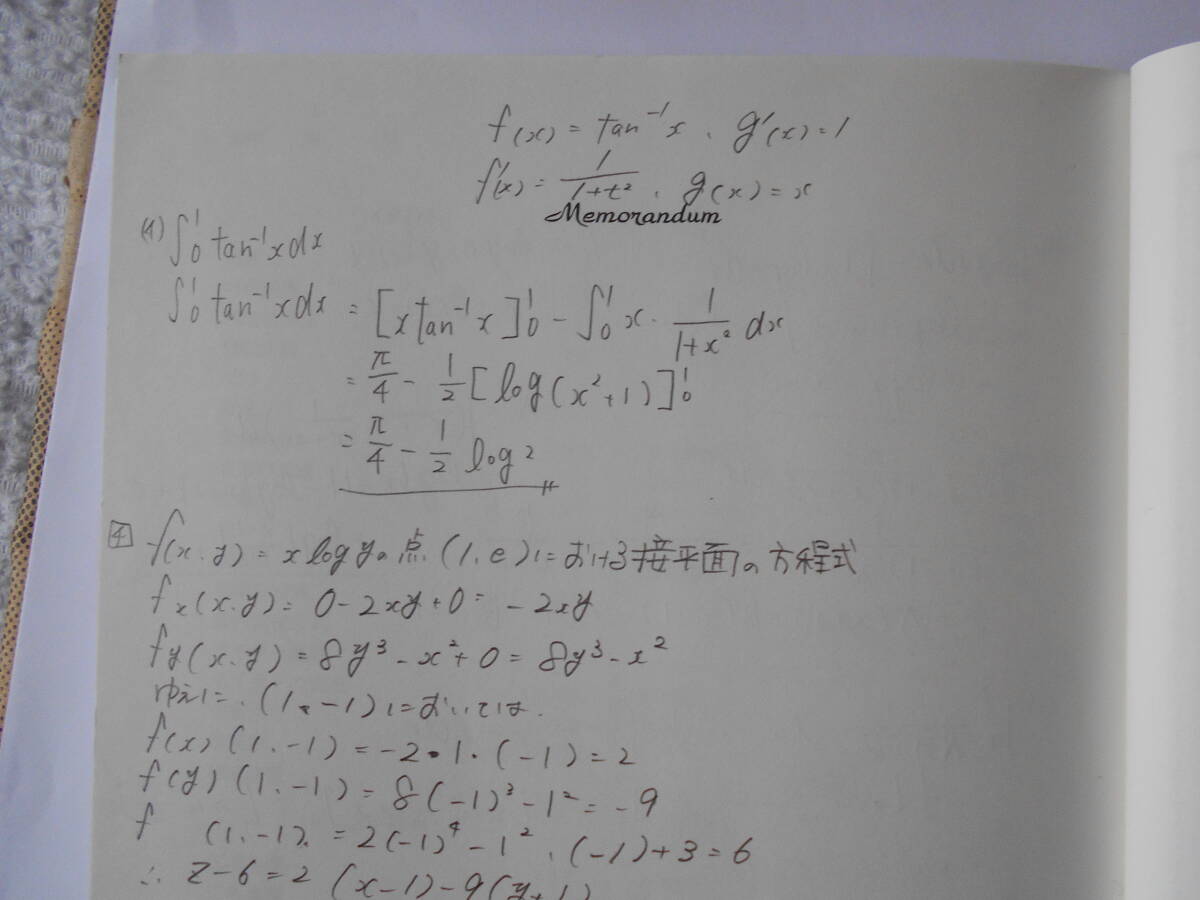 f(x) = tan⁻¹x、g'(x) = 1
f'(x) = 1/(1+t²)、g(x) = x
Memorandum
(1) ∫₀¹ tan⁻¹x dx
∫₀¹ tan⁻¹x dx = [x tan⁻¹x]₀¹ - ∫₀¹ x・1/(1+x²) dx
= π/4 - 1/2 [log(x²+1)]₀¹
= π/4 - 1/2 log2
4 f(x.y) = x log yの点(1.e)における接平面の方程式
fx(x.y) = 0-2xy+0 = -2xy
fy(x.y) = 8y³-x²+0 = 8y³-x²
ゆえに、(1、-1)においては、
f(x)(1.-1) = -2・1・(-1) = 2
f(y)(1.-1) = 8(-1)³-1² = -9
f (1.-1) = 2(-1)⁴-1²・(-1)+3 = 6
∴ z-6 = 2(x-1)-9(y+1)